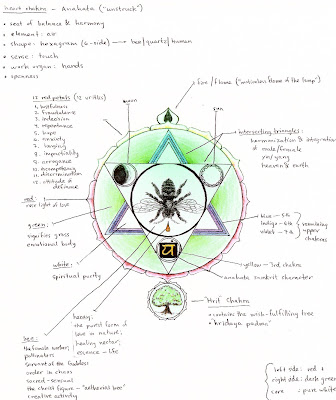 heart chakra - Anahata ("unstruck")
• seat of balance & harmony
• element: air
• shape: hexagram (6-side) → bee/quartz/human
• sense: touch
• work organ: hands
• openness
fire/flame ("motionless flame of the lamp")
moon
sun
12 red petals (12 vrittis)
1. lustfulness
2. fraudulence
3. indecision
4. repentance
5. hope
6. anxiety
7. longing
8. impartiality
9. arrogance
10. incompetency
11. determination
12. attitude of
defiance
intersecting triangles:
harmonization & integration
of male/female
yin/yang
heaven & earth
red:
green:
signifies grass
emotional body
white:
spiritual purity
blue - 5th
indigo - 6th
violet - 7th
remaining
upper
chakras
yellow - 3rd chakra
anahata sanskrit character
यं
Hrit Chakra
• contains the wish-fulfilling tree
• "hridaya padma"
honey:
the purest form of
love in nature;
healing nectar;
essence - life
bee:
the female worker;
pollinators
servant of the Goddess
order in chaos
sacred-sensual
the christ figure -
creative activity
left side: red +
right side: dark green
core: pure white